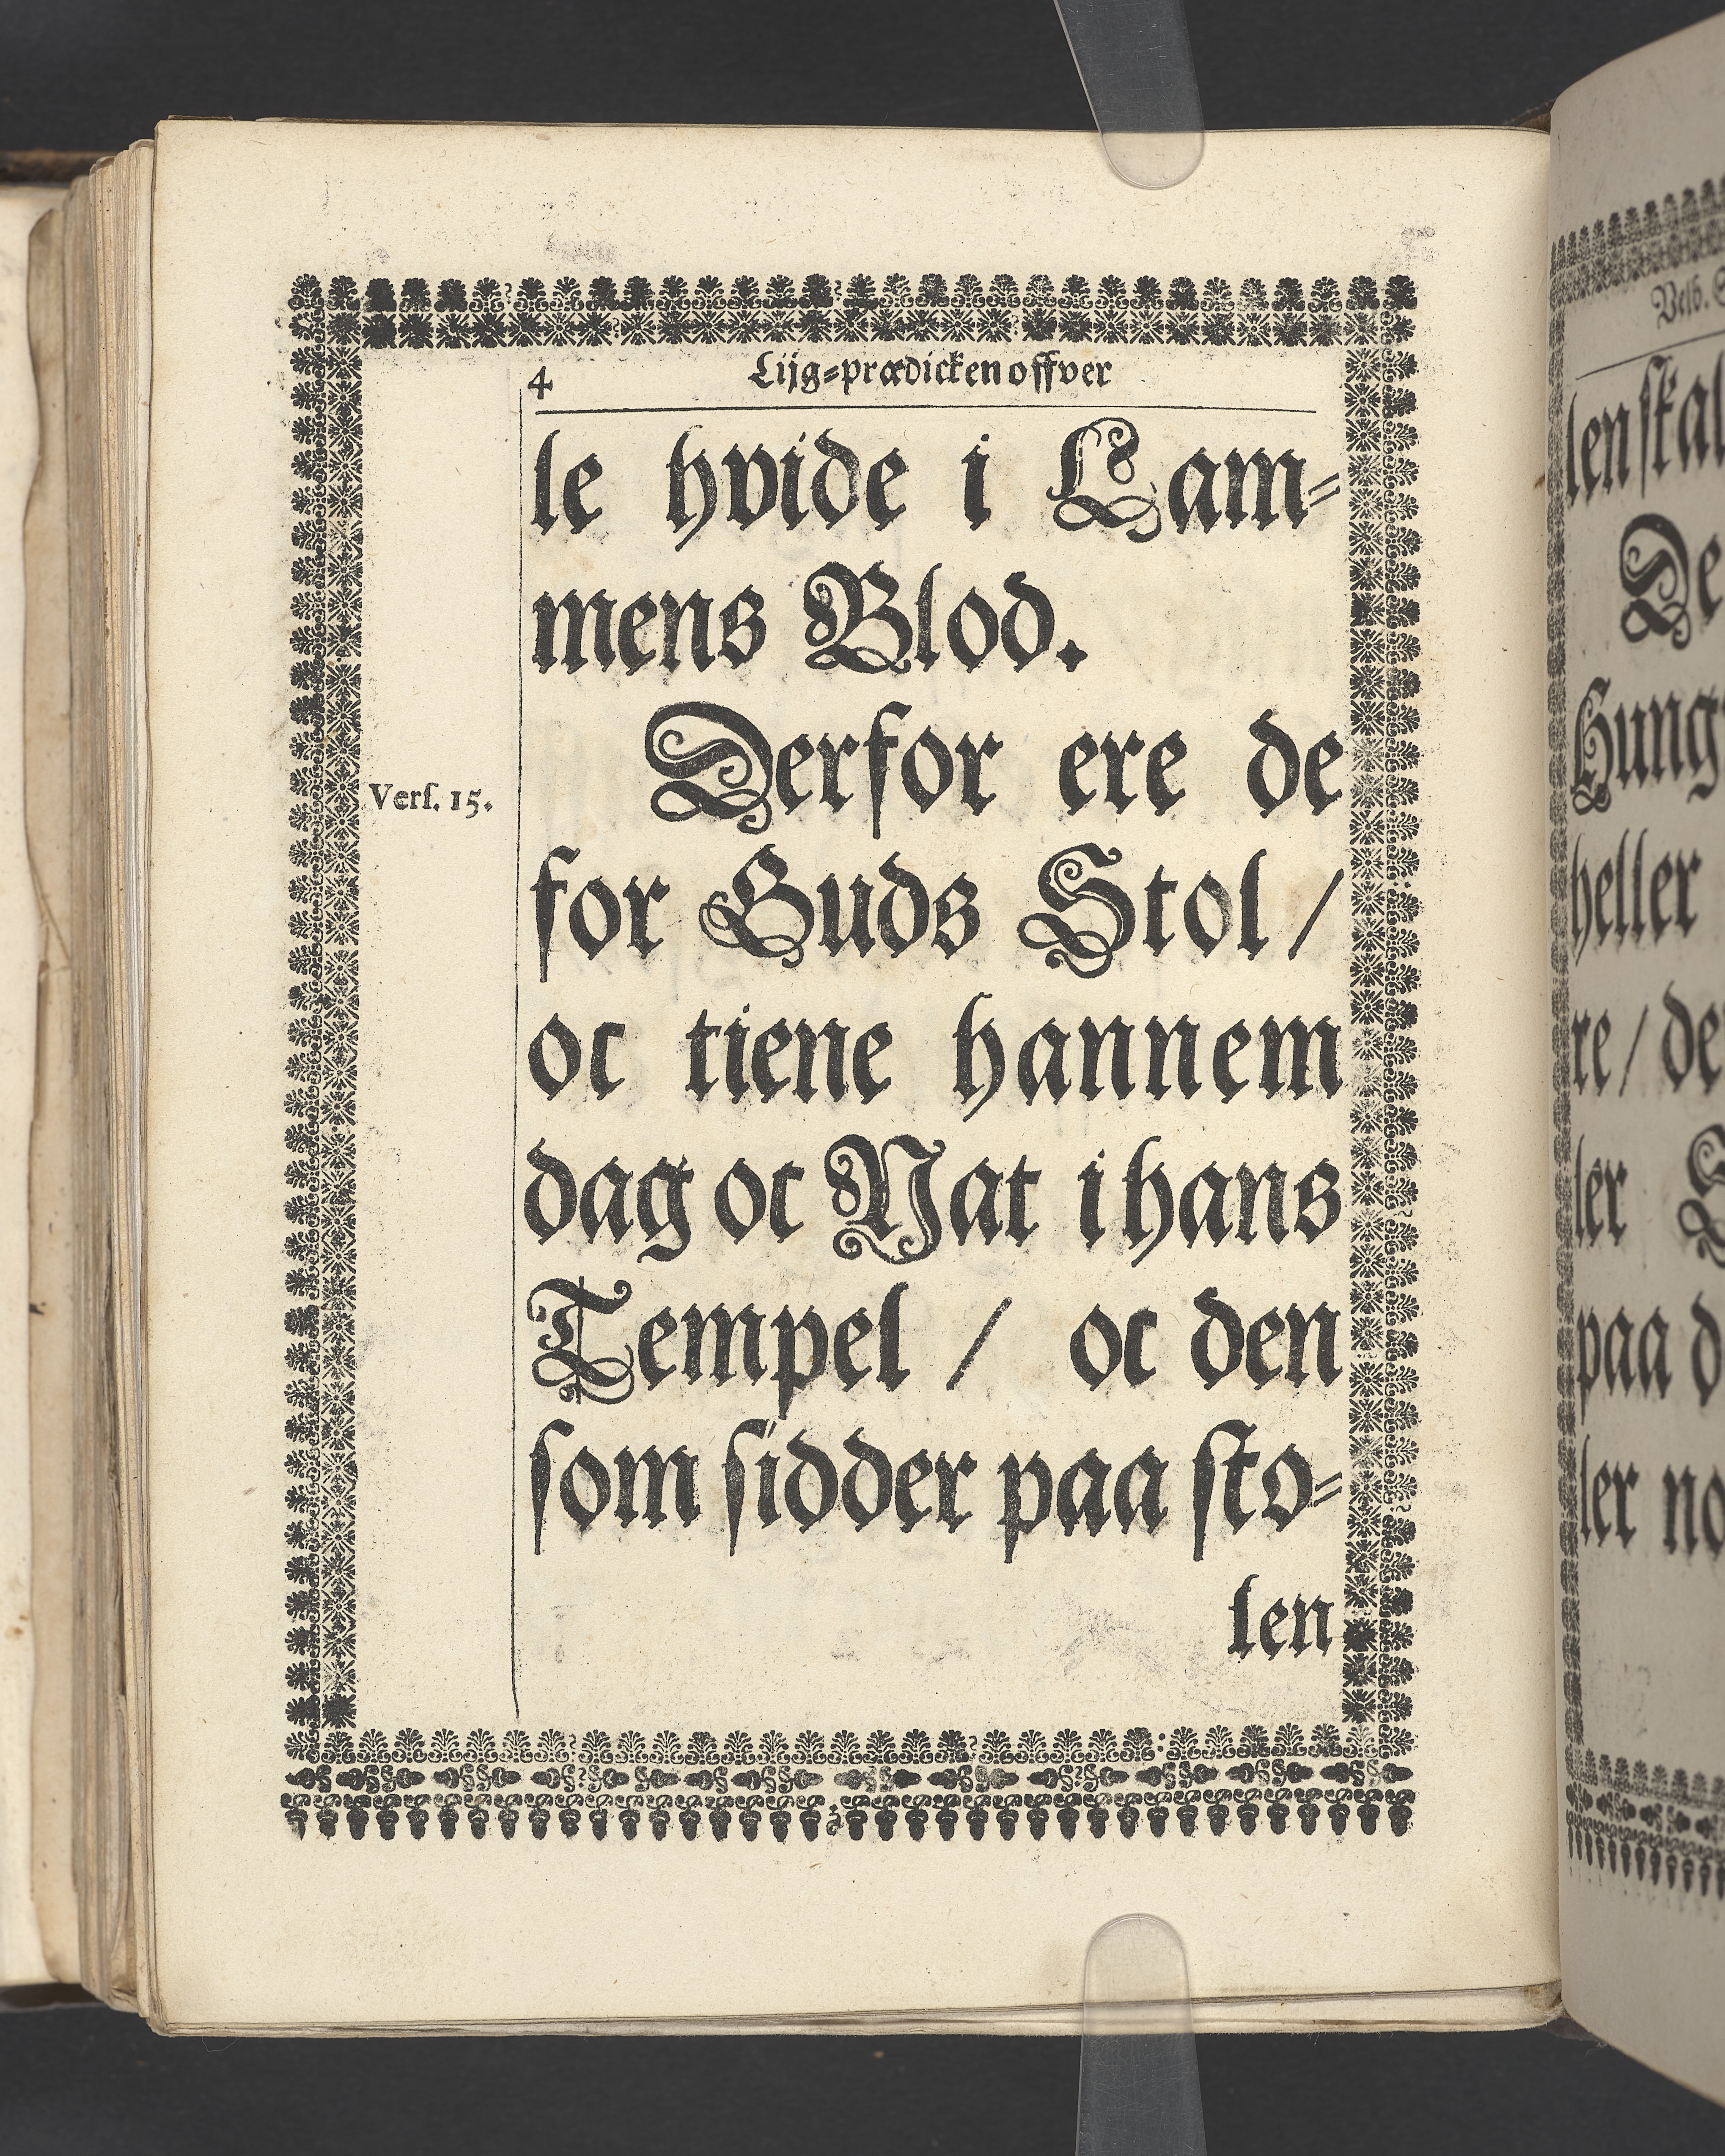 4 Lijg=prædicken offver
le hvide i Lam=
mens Blod.
Derfor ere de
Verſ. 15.
for Guds Stol /
oc tiene hannem
dag oc Nat i hans
Tempel / oc den
ſom ſidder paa ſto=
len
len ſkal
De
Hung
heller
re / de
ler
paa d
ler no